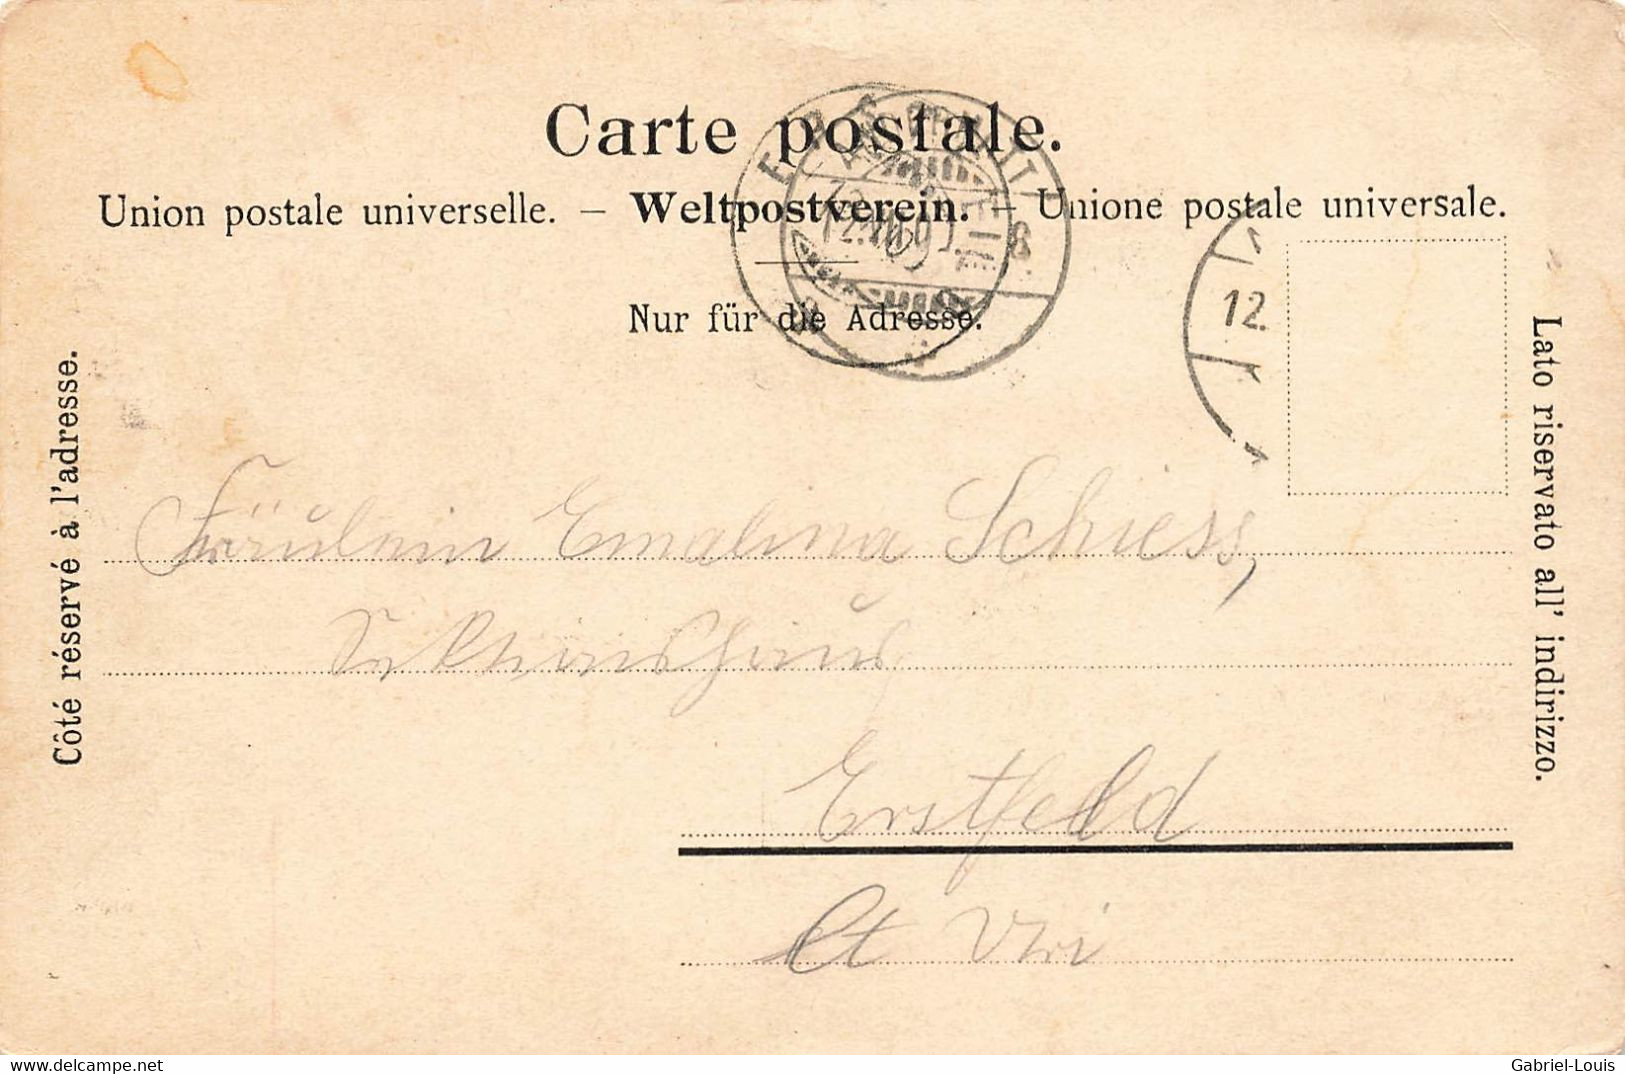 Carte postale.
Union postale universelle. – Weltpostverein. – Unione postale universale.
Nur für die Adresse.
Côté réservé à l'adresse.
Lato riservato all' indirizzo.
12.
Fräulein Emalina Schiess,
Sektionshaus
Erstfeld
Ct Uri
https://www.delcampe.net
Gabriel-Louis